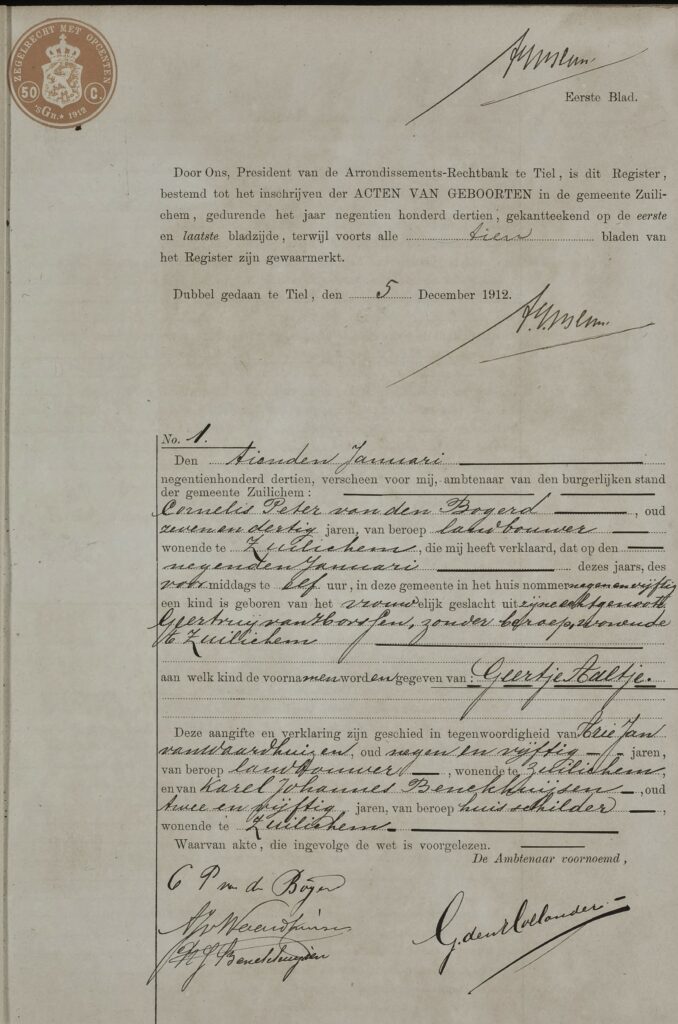 ZEGELRECHT MET OPCENTEN
50 C.
'sGR. * 1912
Eerste Blad.
Door Ons, President van de Arrondissements-Rechtbank te Tiel, is dit Register,
bestemd tot het inschrijven der ACTEN VAN GEBOORTEN in de gemeente Zuili-
chem, gedurende het jaar negentien honderd dertien, gekantteekend op de eerste
en laatste bladzijde, terwijl voorts alle tien bladen van
het Register zijn gewaarmerkt.
Dubbel gedaan te Tiel, den 5 December 1912.
No. 1.
Den tienden Januari
negentienhonderd dertien, verscheen voor mij, ambtenaar van den burgerlijken stand
der gemeente Zuilichem:
Cornelis Peter van den Bogerd, oud
zeven en dertig jaren, van beroep landbouwer
wonende te Zuilichem, die mij heeft verklaard, dat op den
negenden Januari dezes jaars, des
voormiddags te elf uur, in deze gemeente in het huis nommer negen en vijftig
een kind is geboren van het vrouwelijk geslacht uit zijne echtgenoote
Geertruij van Horssen, zonder beroep, wonende
te Zuilichem
aan welk kind de voornamen worden gegeven van: Geertje Aaltje.
Deze aangifte en verklaring zijn geschied in tegenwoordigheid van Arie Jan
van Waardhuizen, oud negen en vijftig jaren,
van beroep landbouwer, wonende te Zuilichem,
en van Karel Johannes Benckhuijsen, oud
twee en vijftig jaren, van beroep huisschilder,
wonende te Zuilichem.
Waarvan akte, die ingevolge de wet is voorgelezen.
De Ambtenaar voornoemd,
C P van den Bogerd
G. den Hollander
K J Benckhuijsen